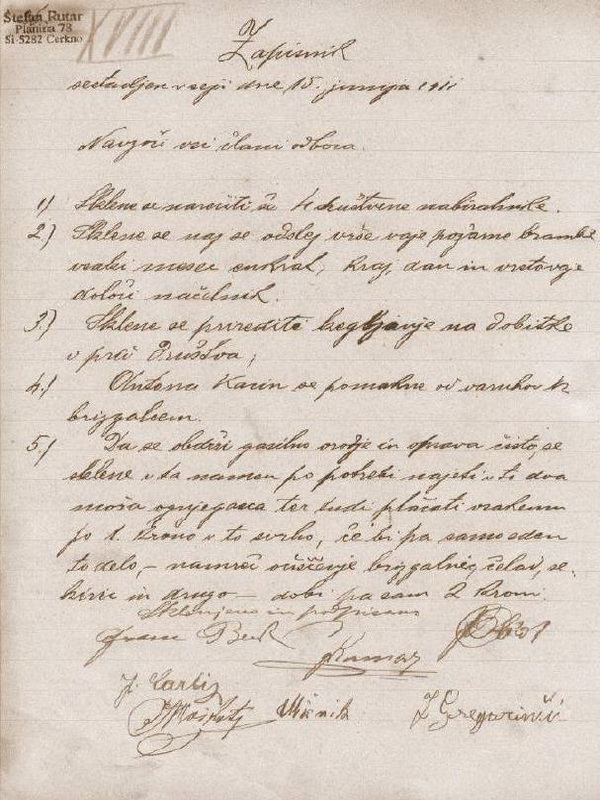 Štefan Rutar
Planina 73
SI-5282 Cerkno
XVIII
Zapisnik
dne 15. junija 1911
Navzoči vsi člani odbora.
1) Sklene se naročiti še 4 društvene nabiralnike.
2) Sklene se naj se odslej vrše vaje požarne brambe
vsaki mesec enkrat, kraj, dan in vrsto vaje
določi načelnik.
3) Sklene se prirediti kegljanje na dobitke
v prid društva,
4.) Antona Karin se pomakne od varuhov k
brizgalcem.
5.) Da se obdrži gasilno orodje in oprava čisto, se
sklene v ta namen po potrebi najeti v to dva
moža ognjegasca ter tudi plačati vsakemu
po 1. krono v to svrho, če bi pa samo eden
to delo, – namreč očiščevje brizgalnic, čelad, se-
kiric in drugo – dobi pa sam 2 kroni.
Sklenjeno in podpisano
Franc
J. Mišnik J. Gregorinčič